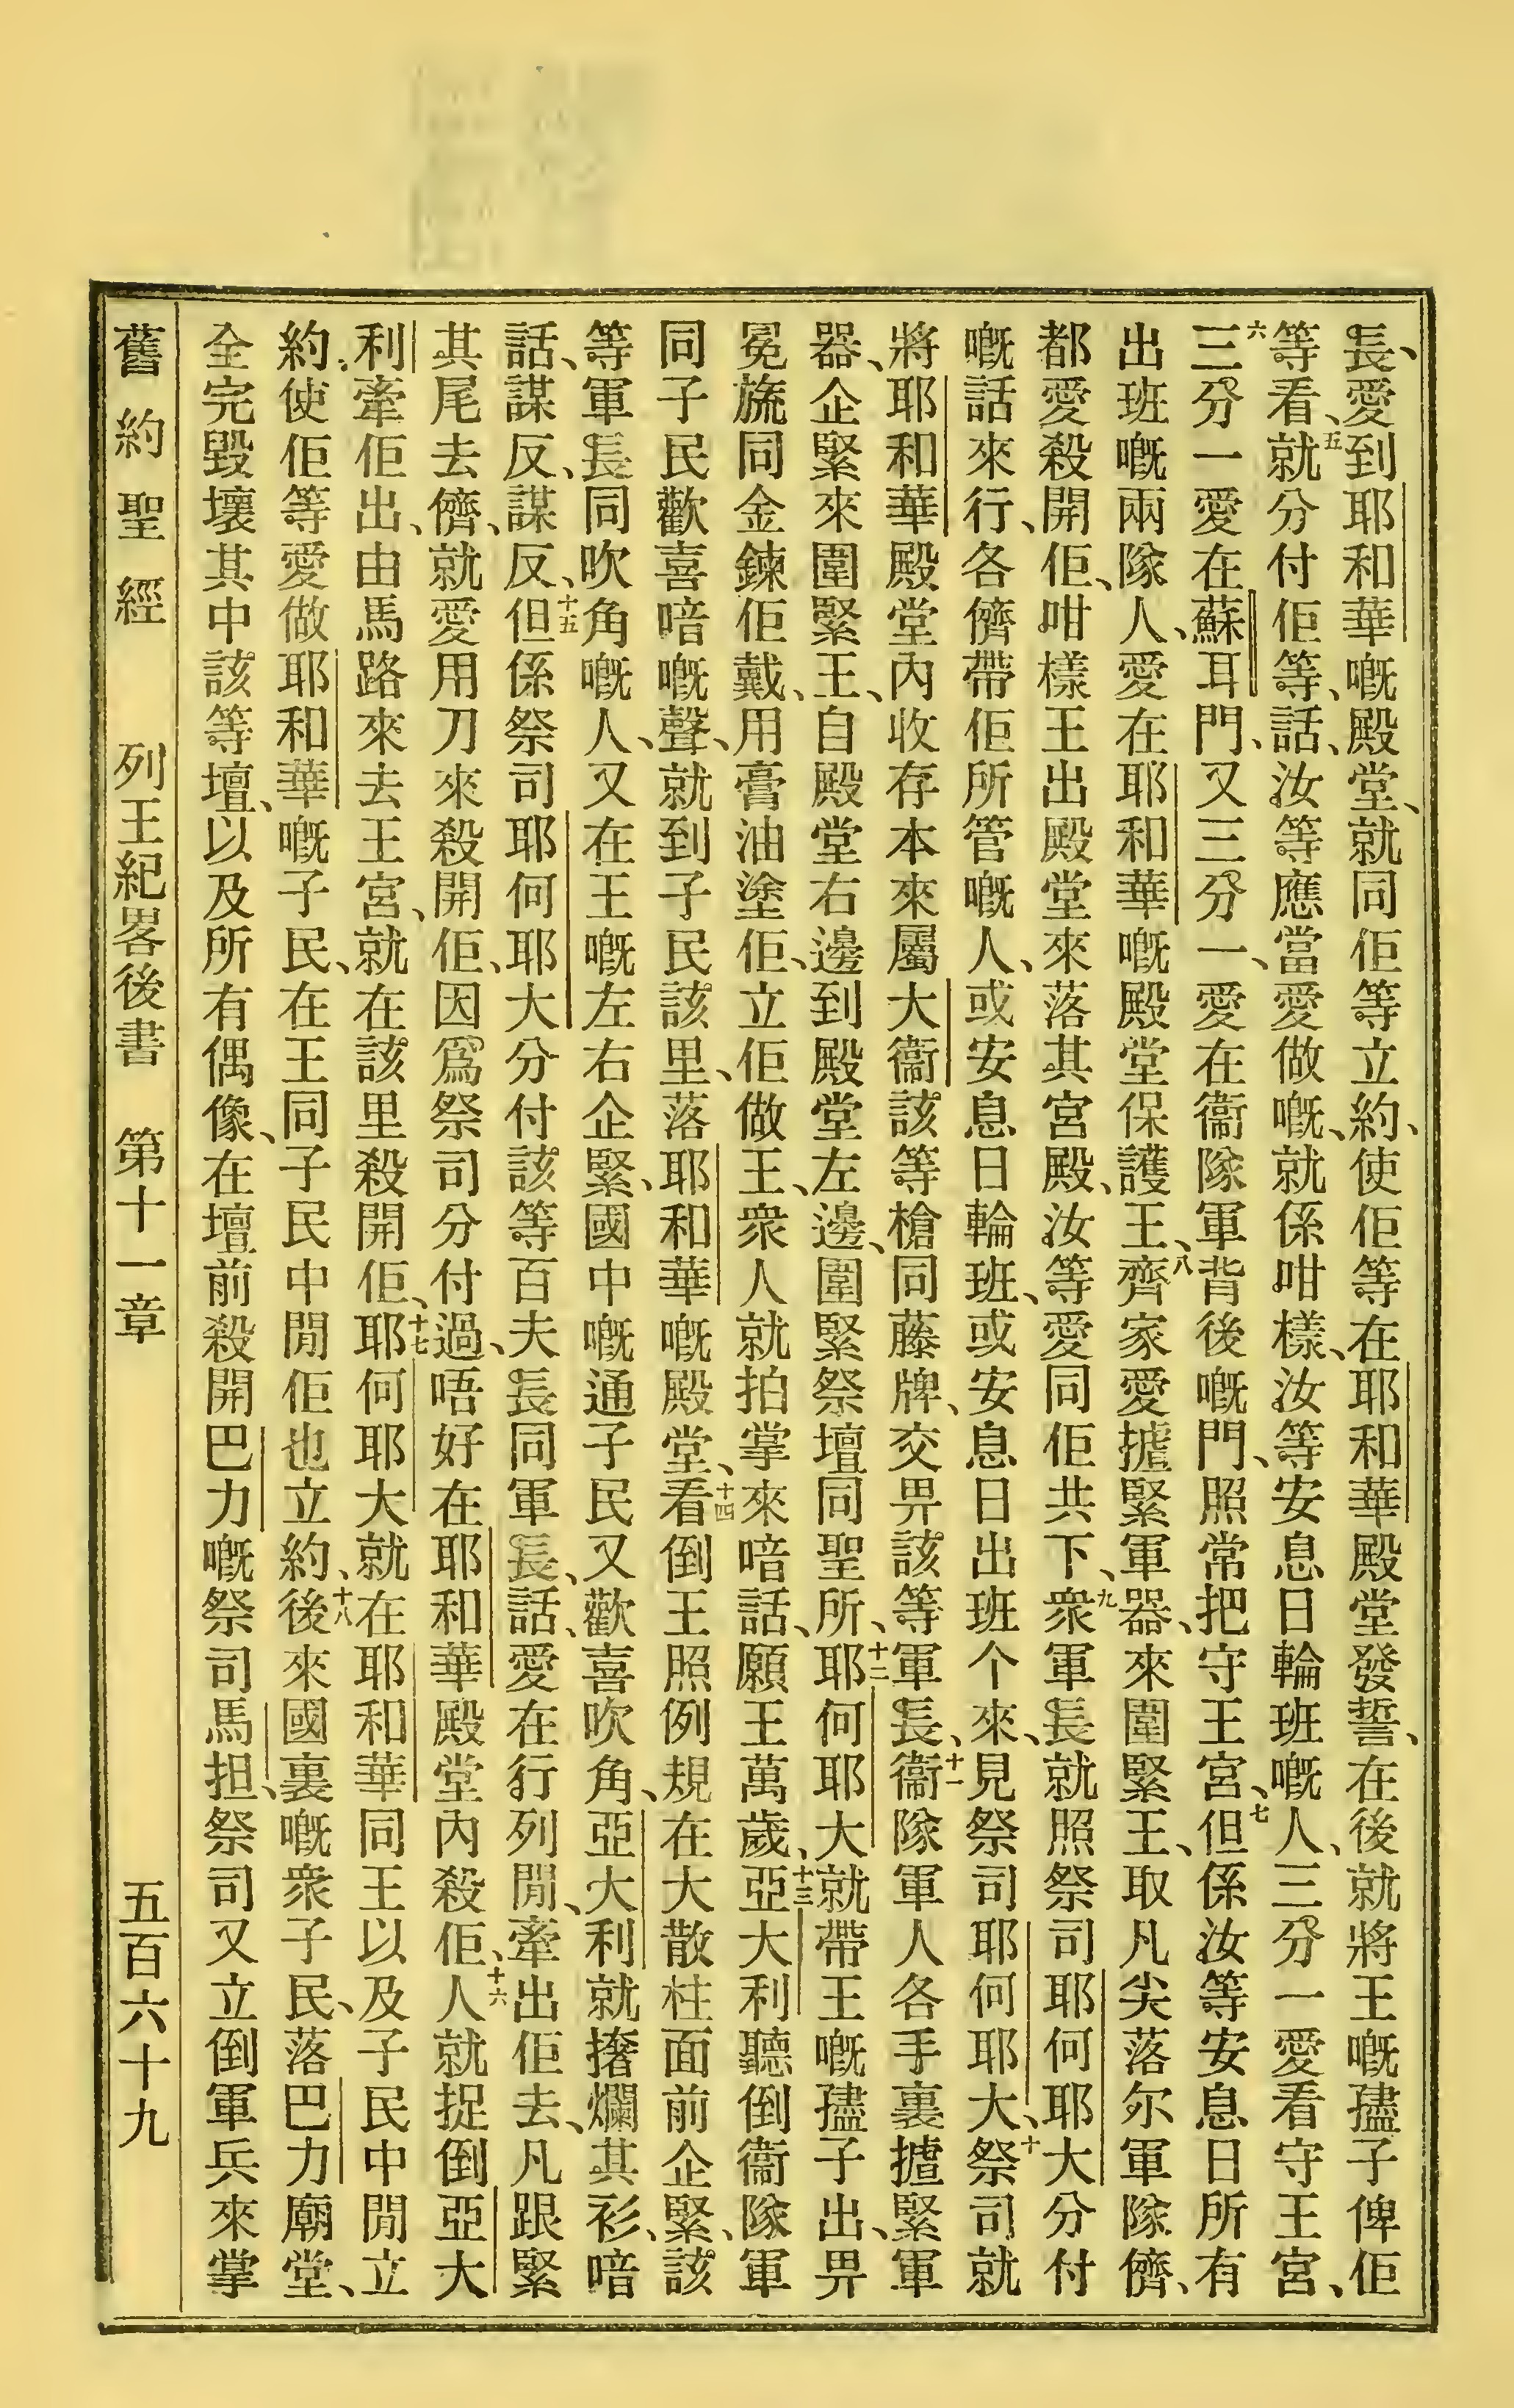 長、愛到耶和華嘅殿堂、就同佢等立約、使佢等在耶和華殿堂發誓、在後就將王嘅𡥧子俾佢
等看、五就分付佢等、話、汝等應當愛做嘅、就係咁樣、汝等安息日輪班嘅人、三分一愛看守王宮、
六三分一愛在蘇耳門、又三分一、愛在衞隊軍背後嘅門、照常把守王宮、七但係汝等安息日所有
出班嘅兩隊人、愛在耶和華嘅殿堂保護王、八齊家愛攄緊軍器、來圍緊王、取凡尖落尔軍隊儕、
都愛殺開佢、咁樣王出殿堂來落其宮殿、汝等愛同佢共下、九衆軍長就照祭司耶何耶大分付
嘅話來行、各儕帶佢所管嘅人、或安息日輪班、或安息日出班个來、見祭司耶何耶大、十祭司就
將耶和華殿堂內收存本來屬大衞該等槍同藤牌、交畀該等軍長、十一衞隊軍人各手裏攄緊軍
器、企緊來圍緊王、自殿堂右邊到殿堂左邊、圍緊祭壇同聖所、十二耶何耶大就帶王嘅𡥧子出、畀
冕旒同金鍊佢戴、用膏油塗佢、立佢做王、衆人就拍掌來喑話、願王萬歲、十三亞大利聽倒衞隊軍
同子民歡喜喑嘅聲、就到子民該里、落耶和華嘅殿堂、十四看倒王照例規在大散柱面前企緊、該
等軍長同吹角嘅人、又在王嘅左右企緊、國中嘅通子民又歡喜吹角、亞大利就撦爛其衫、喑
話、謀反、謀反、十五但係祭司耶何耶大分付該等百夫長同軍長、話、愛在行列閒、牽出佢去、凡跟緊
其尾去儕、就愛用刀來殺開佢、因爲祭司分付過、唔好在耶和華殿堂內殺佢、十六人就捉倒亞大
利牽佢出、由馬路來去王宮、就在該里殺開佢、十七耶何耶大就在耶和華同王以及子民中閒立
約、使佢等愛做耶和華嘅子民、在王同子民中閒佢也立約、十八後來國裏嘅衆子民、落巴力廟堂、
全完毀壞其中該等壇、以及所有偶像、在壇前殺開巴力嘅祭司馬担、祭司又立倒軍兵來掌
舊約聖經　列王紀畧後書　第十一章　五百六十九